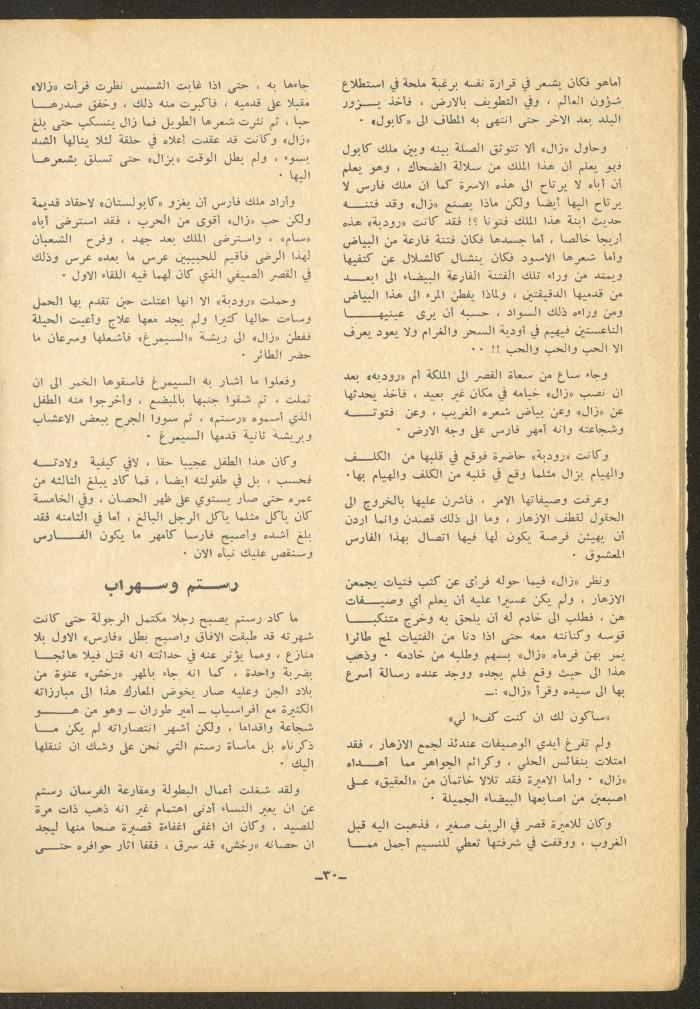 أماهو فكان يشعر في قرارة نفسه برغبة ملحة في استطلاع
شؤون العالم ، وفي التطويف بالارض ، فأخذ يــزور
البلد بعد الاخر حتى انتهى به المطاف الى «كابول» ٠
وحاول «زال» ألا تتوثق الصلة بينه وبين ملك كابول
فهو يعلم أن هذا الملك من سلالة الضحاك ، وهو يعلم
أن أباه لا يرتاح الى هذه الاسرة كما ان ملك فارس لا
يرتاح اليها أيضا ولكن ماذا يصنع «زال» وقد فتنــه
حديث ابنة هذا الملك فتونا ؟! فقد كانت «رودبة» هذه
أريجا خالصا ، أما جسدها فكان فتنة فارعة من البياض
وأما شعرها الاسود فكان ينشال كالشلال عن كتفيها
ويمتد من وراء تلك الفتنة الفارعة البيضاء الى ابعــد
من قدميها الدقيقتين ، ولماذا يفطن المرء الى هذا البياض
ومن وراءه ذلك السواد ، حسبه أن يرى عينيهــا
الناعستين فيهيم في أودية السحر والغرام ولا يعود يعرف
الا الحب والحب والحب !! ٠٠
وجاء ساع من سعاة القصر الى الملكة أم «رودبه» بعد
ان نصب «زال» خيامه في مكان غير بعيد ، فأخذ يحدثها
عن «زال» وعن بياض شعره الغريب ، وعن فتوتــه
وشجاعته وانه أمهر فارس على وجه الارض ٠
وكانت «رودبة» حاضرة فوقع في قلبها من الكلــف
والهيام بزال مثلما وقع في قلبه من الكلف والهيام بها٠
وعرفت وصيفاتها الامر ، فأشرن عليها بالخروج الى
الحقول لقطف الازهار ، وما الى ذلك قصدن وانما اردن
أن يهيئن فرصة يكون لها فيها اتصال بهذا الفارس
المعشوق ٠
ونظر «زال» فيما حوله فرأى عن كثب فتيات يجمعن
الازهار ، ولم يكن عسيرا عليه أن يعلم أي وصيــفات
هن ، فطلب الى خادم له أن يلحق به وخرج متنكبــا
قوسه وكنانته معه حتى اذا دنا من الفتيات لمح طائرا
يمر بهن فرماه «زال» بسهم وطلبه من خادمه ٠ وذهب
هذا الى حيث وقع فلم يجده ووجد عنده رسالة أسرع
بها الى سيده وقرأ «زال» :ــ
«ساكون لك ان كنت كفءا لي»
ولم تفرغ أيدي الوصيفات عندئذ لجمع الازهار ، فقد
امتلات بنفائس الحلي ، وكرائم الجواهر مما أهــداه
«زال» ٠ وأما الاميرة فقد تلالا خاتمان من «العقيق» علـى
اصبعين من اصابعها البيضاء الجميلة ٠
وكان للاميرة قصر في الريف صغير ، فذهبت اليه قبل
الغروب ، ووقفت في شرفتها تعطي للنسيم أجمل ممــا
جاءها به ، حتى اذا غابت الشمس نظرت فرأت «زالا»
مقبلا على قدميه ، فأكبرت منه ذلك ، وخفق صدرهــا
حبا ، ثم نثرت شعرها الطويل فما زال ينسكب حتى بلغ
«زال» وكانت قد عقدت أعلاه في حلقة لئلا ينالها الشد
بسوء ، ولم يطل الوقت «بزال» حتى تسلق بشعرهــا
اليها ٠
وأراد ملك فارس أن يغزو «كابولستان» لاحقاد قديمة
ولكن حب «زال» أقوى من الحرب ، فقد استرضى أباه
«سام» ، واسترضى الملك بعد جهد ، وفرح الشعبان
لهذا الرضى فأقيم للحبيبين عرس ما بعده عرس وذلك
في القصر الصيفي الذي كان لهما فيه اللقاء الاول ٠
وحملت «رودبة» الا انها اعتلت حين تقدم بها الحمل
وساءت حالها كثيرا ولم يجد معها علاج وأعيت الحيلة
ففطن «زال» الى ريشة «السيمرغ» فأشعلها وسرعان ما
حضر الطائر ٠
وفعلوا ما أشار به السيمرغ فأسقوها الخمر الى ان
ثملت ، ثم شقوا جنبها بالمبضع ، وأخرجوا منه الطفل
الذي أسموه «رستم» ، ثم سووا الجرح ببعض الاعشاب
وبريشة ثانية قدمها السيمرغ ٠
وكان هذا الطفل عجيبا حقا ، لافي كيفية ولادتــه
فحسب ، بل في طفولته ايضا ، فما كاد يبلغ الثالثه من
عمره حتى صار يستوي على ظهر الحصان ، وفي الخامسة
كان يأكل مثلما يأكل الرجل البالغ ، أما في الثامنه فقد
بلغ أشده وأصبح فارسا كأمهر ما يكون الفــارس
وسنقص عليك نبأه الان ٠
رستم وسهراب
ما كاد رستم يصبح رجلا مكتمل الرجولة حتى كانت
شهرته قد طبقت الافاق واصبح بطل «فارس» الاول بلا
منازع ، ومما يؤثر عنه في حداثته انه قتل فيلا هائجـا
بضربة واحدة ، كما انه جاء بالمهر «رخش» عنوة من
بلاد الجن وعليه صار يخوض المعارك هذا الى مبارزاته
الكثيرة مع أفراسياب ــ أمير طوران ــ وهو من هــو
شجاعة واقداما ، ولكن أشهر انتصاراته لم يكن مــا
ذكرناه بل مأساة رستم التي نحن على وشك ان ننقلها
اليك ٠
ولقد شغلت أعمال البطولة ومقارعة الفرسان رستم
عن ان يعير النساء أدنى اهتمام غير انه ذهب ذات مرة
للصيد ، وكان ان اغفى اغفاءة قصيرة صحا منها ليجد
ان حصانه «رخش» قد سرق ، فقفا اثار حوافره حتــى
ــ٣٠ــ